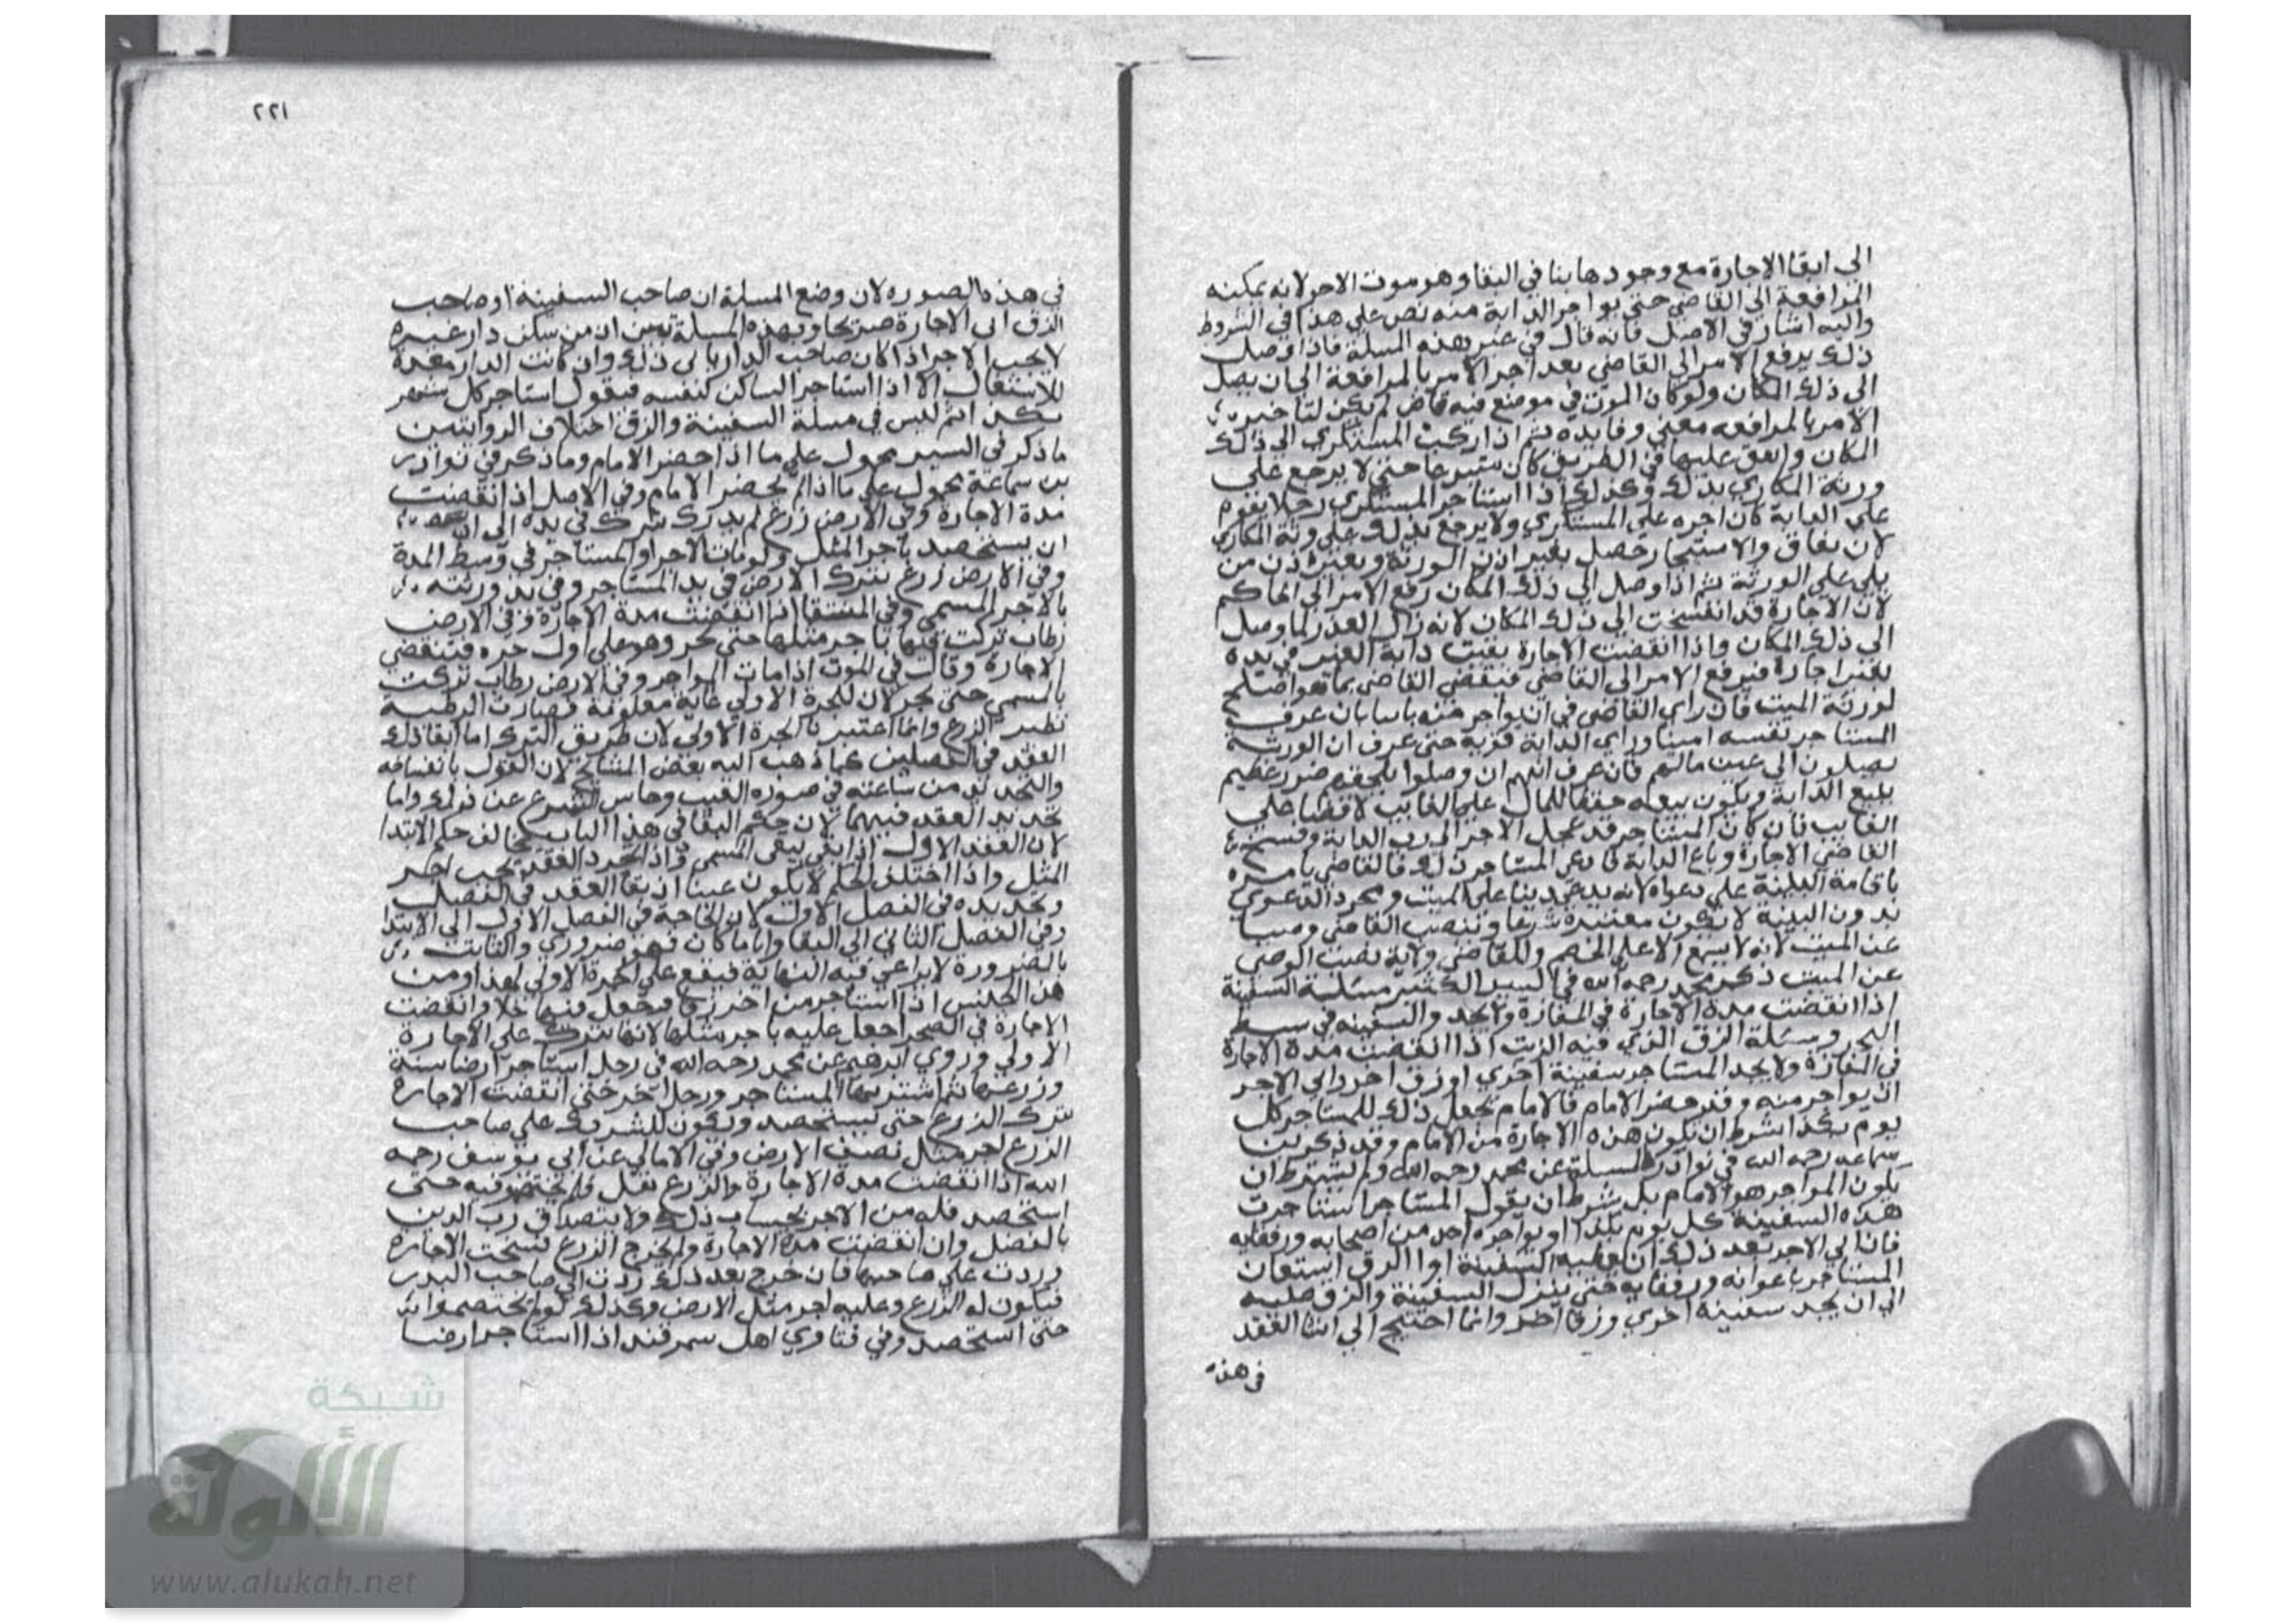 الى ابقا الاجارة مع وجود ما ينافي البقا وهو موت الاجر لانه يمكنه
المرافعة الى القاضي حتى يواجر الدابة منه نص على هذا في الشروط
واليه اشار في الاصل فانه قال في غير هذه المسلة فاذا وصل
ذلك يرفع الامر الى القاضي بعد اجر الامر بالمرافعة الى ان يصل
الى ذلك المكان ولو كان الموت في موضع فيه قاض لم يكن لتاخير
الامر بالمرافعه معنى وفايده ثم اذا ركب المستكري الى ذلك
المكان وانفق عليها في الطريق كان متبرعا حتى لا يرجع على
ورثة المكاري بذلك وكذلك اذا استاجر المستكري رجلا يقوم
على الدابة كان اجره على المستكري ولا يرجع بذلك على ورثة المكاري
لان نفاق والاستيجار حصل بغير اذن الورثة وبغير اذن من
يلي على الورثة ثم اذا وصل الى ذلك المكان رفع الامر الى الحاكم
لان الاجارة قد انفسخت الى ذلك المكان لانه زال العذر لما وصل
الى ذلك المكان واذا انقضت الاجارة بقيت دابة الغير في يده
بغير اجارة فيرفع الامر الى القاضي فيقضي القاضي بما هو اصلح
لورثة الميت فان راى القاضي في ان يواجر منه ثانيا بان عرف
المستاجر نفسه امينا وراى الدابة قوية حتى عرف ان الورثة
يصلون الى عين مالهم فان عرف انهم ان وصلوا يلحقهم ضرر عظيم
يبيع الدابة ويكون بيعه حفظا للمال على الغايب لا قضا على
الغايب فان كان المستاجر قد عجل الاجر الى رب الدابة وفسخ
القاضي الاجارة وباع الدابة فادعى المستاجر ذلك فالقاضي يامره
باقامة البينة على دعواه لانه يدعي دينا على الميت ومجرد الدعوى
بدون البينة لا تكون معتبرة شرعا وينصب القاضي وصيا
عن الميت لانه لا يسمع الا على الخصم وللقاضي ولاية نصب الوصي
عن الميت ذكر محمد رحمه الله في السير الكبير مسئلة السفينة
اذا انقضت مدة الاجارة في المفازة ولا يجد والسفينه في سط
البحر ومسئلة الزق الذي فيه الزيت اذا انقضت مدة الاجارة
في المفازة ولا يجد المستاجر سفينة اخرى او زق اخر وابى الاجر
ان يواجر منه وقد حضر الامام فالامام يجعل ذلك للمستاجر كل
يوم بكذا بشرط ان تكون هذه الاجارة من الامام وقد ذكر بن
سماعه رحمه الله في نوادر المسلة عن محمد رحمه الله ولم يشترط ان
يكون المواجر هو الامام بل شرط ان يقول المستاجر استاجرت
هذه السفينة كل يوم بكذا او يواجره احد من اصحابه ورفقايه
فان ابى الاجر بعد ذلك ان يعطيه السفينة او الزق استعان
المستاجر باعوانه ورفقايه حتى ينزل السفينة والزق عليه
الى ان يجد سفينة اخرى وزقا اخر وانما احتيج الى انشا العقد
في هذه
٢٢١
في هذه الصوره لان وضع المسلة ان صاحب السفينة او صاحب
الزق ابى الاجارة صريحا وبهذه المسلة تبين ان من سكن دار غيره
لا يجب الاجر اذا كان صاحب الدار يابى ذلك وان كانت الدار معدة
للاستغلال الا اذا استاجر الساكن لنفسه فيقول استاجر كل شهر
بكذا ثم ليس في مسلة السفينة والزق اختلاف الروايتين
ما ذكر في السير محمول على ما اذا حضر الامام وما ذكر في نوادر
بن سماعة محمول على ما اذا لم يحضر الامام وفي الاصل اذا انقضت
مدة الاجارة وفي الارض زرع لم يدرك يترك في يده الى ان
ان يستحصد باجر المثل ولو مات الاجر او المستاجر في وسط المدة
وفي الارض زرع يترك الارض في يد المستاجر وفي يد ورثته
بالاجر المسمى وفي المنتقا اذا انقضت مدة الاجارة وفي الارض
رطاب تركت فيها باجر مثلها حتى تجز وهو على اول جزه فتنقضي
الاجارة وقال في الموت اذا مات المواجر وفي الارض رطاب تركت
بالمسمى حتى تجز لان للجزة الاولى غاية معلومة فصارت الرطبة
نظير الزرع وانما اعتبرنا الجزة الاولى لان طريق الترك اما ابقا ذلك
العقد في الفصلين كما ذهب اليه بعض المشايخ لان القول بانفساخه
والتجدد من ساعته في صورة
تجديد العقد فيهما لان حكم البقا في هذا الباب يخالف حكم الابتدا
لان العقد الاول اذا بقي يبقى المسمى واذا تجدد العقد يجب اجر
المثل واذا اختلف الحكم لا يكون عبثا ان بقا العقد في الفصل
وتجديده في الفصل الاول لان الحاجة في الفصل الاول الى الابتدا
وفي الفصل الثاني الى البقا واياما كان فهو ضروري والثابت
بالضرورة لا يراعى فيه النهاية فيقع على الجزة الاولى لهذا ومن
هذا الجنس اذا استاجر من اخر زقا وجعل فيها خلا وانقضت
الاجارة في الصحرا جعل عليه باجر مثلها لانها تترك على الاجارة
الاولى وروى ابرهيم عن محمد رحمه الله في رجل استاجر ارضا سنة
وزرعها ثم اشتراها المستاجر ورجل اخر حتى انقضت الاجارة
يترك الزرع حتى يستحصد ويكون للشريك على صاحب
الزرع اجر مثل نصف الارض وفي الامالي عن ابي يوسف رحمه
الله اذا انقضت مدة الاجارة والزرع بقل ولم يختصموا فيه حتى
استحصد فله من الاجر بحساب ذلك ولا يتصدق رب الدين
بالفضل وان انقضت مدة الاجارة ولم يخرج الزرع فسخت الاجارة
وردت على صاحبها فان خرج بعد ذلك ردت الى صاحب البذر
فيكون له الزرع وعليه اجر مثل الارض وكذلك لو لم يختصموا
حتى استحصد وفي فتاوى اهل سمرقند اذا استاجر ارضا
شبكة
الألوكة
www.alukah.net